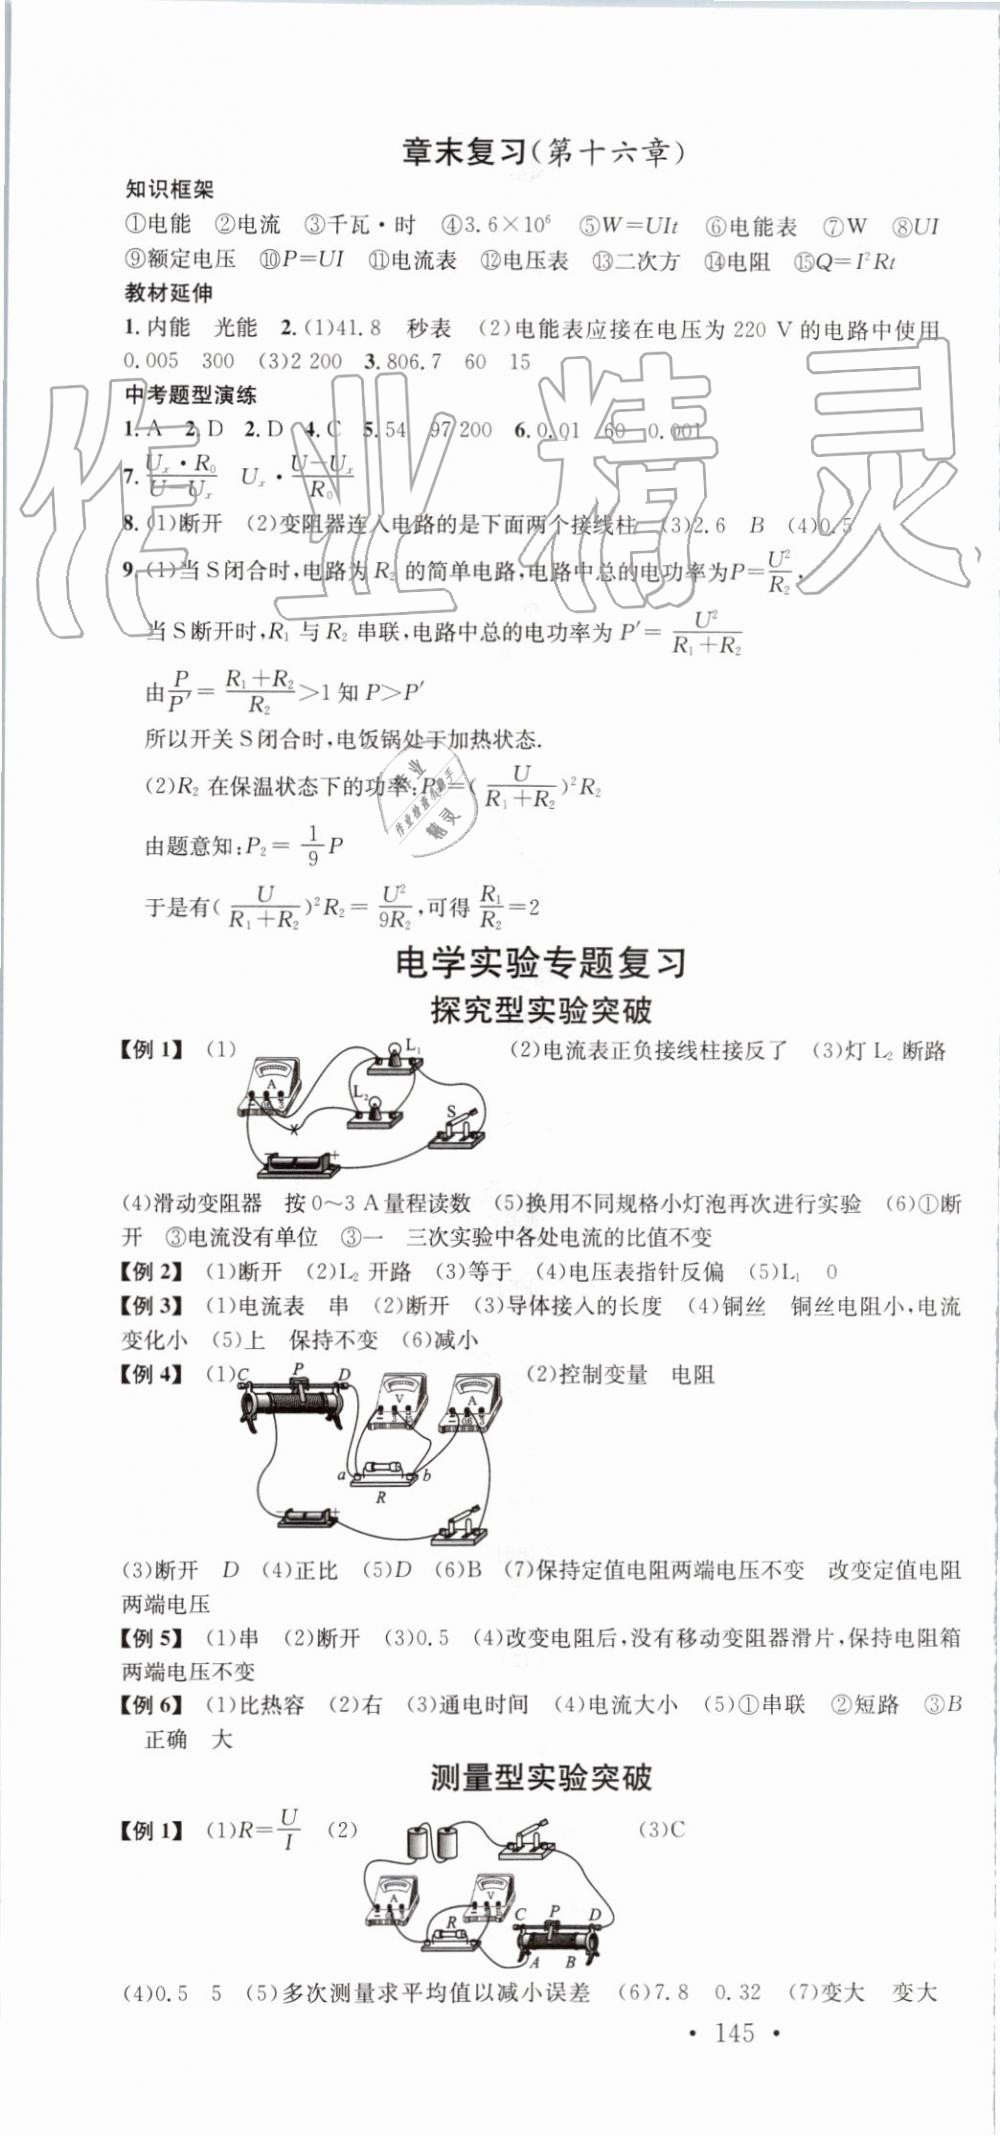 章末复习(第十六章)
知识框架
①电能 ②电流 ③千瓦·时 ④3.6×10⁶ ⑤W=UIt ⑥电能表 ⑦W ⑧UI
⑨额定电压 ⑩P=UI ⑪电流表 ⑫电压表 ⑬二次方 ⑭电阻 ⑮Q=I²Rt
教材延伸
1.内能 光能 2.(1)41.8 秒表 (2)电能表应接在电压为 220 V 的电路中使用
0.005 300 (3)2 200 3.806.7 60 15
中考题型演练
1.A 2.D 2.D 4.C 5.54 97 200 6.0.01 60 0.001
7. Uₓ·R₀/(U−Uₓ) Uₓ·(U−Uₓ)/R₀
8.(1)断开 (2)变阻器连入电路的是下面两个接线柱 (3)2.6 B (4)0.5
9.(1)当S闭合时,电路为R₂的简单电路,电路中总的电功率为P=U²/R₂,
当S断开时,R₁与R₂串联,电路中总的电功率为P′=U²/(R₁+R₂)
由P/P′=(R₁+R₂)/R₂>1知P>P′
所以开关S闭合时,电饭锅处于加热状态.
(2)R₂在保温状态下的功率:P₂=(U/(R₁+R₂))²R₂
由题意知:P₂=1/9 P
于是有(U/(R₁+R₂))²R₂=U²/9R₂,可得R₁/R₂=2
电学实验专题复习
探究型实验突破
【例 1】 (1) (2)电流表正负接线柱接反了 (3)灯L₂断路
L₁
A
− 0.6 3
L₂
S
− +
(4)滑动变阻器 按0～3 A量程读数 (5)换用不同规格小灯泡再次进行实验 (6)①断
开 ③电流没有单位 ③一 三次实验中各处电流的比值不变
【例 2】 (1)断开 (2)L₂开路 (3)等于 (4)电压表指针反偏 (5)L₁ 0
【例 3】 (1)电流表 串 (2)断开 (3)导体接入的长度 (4)铜丝 铜丝电阻小,电流
变化小 (5)上 保持不变 (6)减小
【例 4】 (1) (2)控制变量 电阻
C P D
V A
− 3 15 − 0.6 3
a b
R
− +
(3)断开 D (4)正比 (5)D (6)B (7)保持定值电阻两端电压不变 改变定值电阻
两端电压
【例 5】 (1)串 (2)断开 (3)0.5 (4)改变电阻后,没有移动变阻器滑片,保持电阻箱
两端电压不变
【例 6】 (1)比热容 (2)右 (3)通电时间 (4)电流大小 (5)①串联 ②短路 ③B
正确 大
测量型实验突破
【例 1】 (1)R=U/I (2) (3)C
A V
R C P D
A B
(4)0.5 5 (5)多次测量求平均值以减小误差 (6)7.8 0.32 (7)变大 变大
· 145 ·
作业精灵
作业
作业检查小助手
精灵